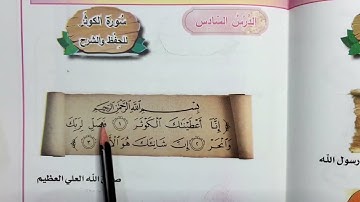 الدرس السادس
سُورَة الكوثر
للحفظ والشرح
بِسْمِ اللَّهِ الرَّحْمَنِ الرَّحِيمِ
إِنَّا أَعْطَيْنَاكَ الْكَوْثَرَ ١ فَصَلِّ لِرَبِّكَ
وَانْحَرْ ٢ إِنَّ شَانِئَكَ هُوَ ٣
الله العلي العظيم
رسول الله